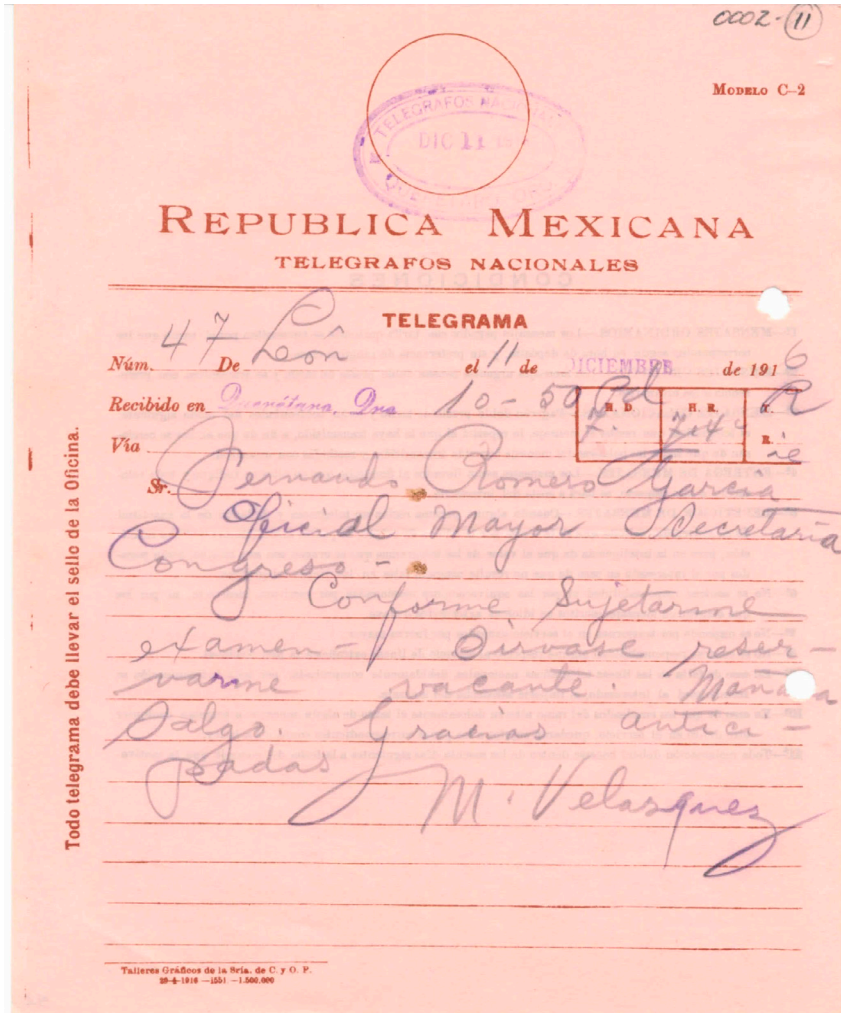 0002-11
MODELO C-2
TELEGRAFOS NACIONAL
DIC 11
REPUBLICA MEXICANA
TELEGRAFOS NACIONALES
TELEGRAMA
Núm. 47 De León el 11 de DICIEMBRE de 1916
Recibido en Querétaro, Qro 10-50 Pd
H. D. H. R. T. R.
7. 7.4
Vía
Sr. Fernando Romero García
Oficial Mayor Secretaría
Congreso-
Conforme Sujetarme
examen- Sirvase reser-
varme vacante. Mañana
Salgo. Gracias antici-
padas
M. Velasquez
Todo telegrama debe llevar el sello de la Oficina.
Talleres Gráficos de la Sría. de C. y O. P.
29-4-1916 —1551 —1.500,000